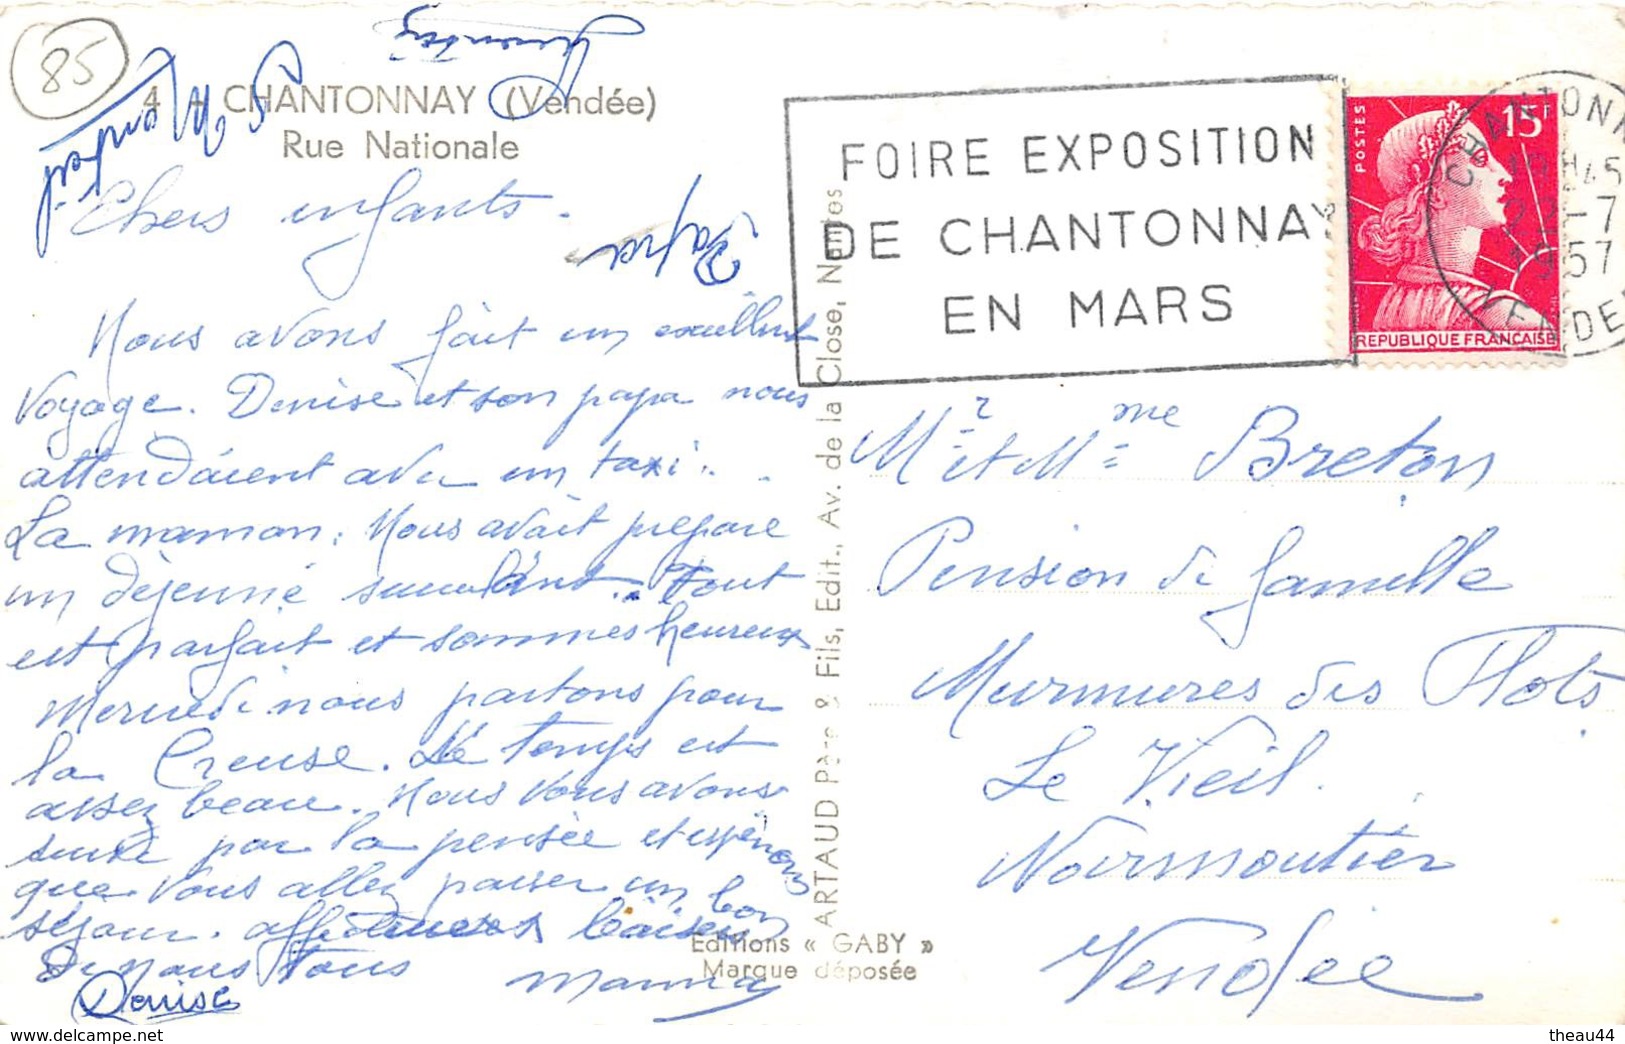 85
4 - CHANTONNAY (Vendée)
Rue Nationale
Chers enfants.
Papa
Nous avons fait un excellent
voyage. Denise et son papa nous
attendaient avec un taxi.
La maman. Nous avait préparé
un déjeuné succulent. Tout
est parfait et sommes heureux
Mercredi nous partons pour
la Creuse. Le temps est
assez beau. Nous vous avons
suivi par la pensée et espérons
que vous allez passer un bon
séjour. affectueux baisers
De nous tous
Denise
Maman
ARTAUD Père & Fils, Edit., Av. de la Close, Nantes
Editions « GABY »
Marque déposée
FOIRE EXPOSITION
DE CHANTONNAY
EN MARS
POSTES
15F
REPUBLIQUE FRANÇAISE
CHANTONNAY
H45
-7
1957
VENDEE
Mr et Mme Breton
Pension de famille
Murmures des Flots
Le Vieil.
Noirmoutier
Vendée
www.delcampe.net
theau44